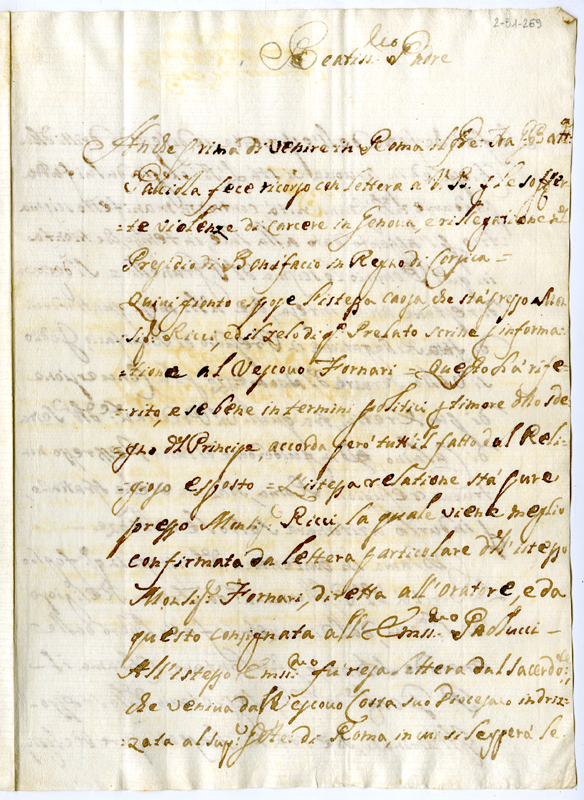 2-51-269
Beatiss.mo P̃adre
Anche prima di venire in Roma il Pre: Fra Gio Batt.a
fece ricorso con lettera a V. B. p le soffer-
-te violenze di carcere in Genova, e rillegazione nel
Presidio di Bonifacio in Regno di Corsica =
Quivi gionto espose l'istessa causa, che stà presso Mon-
sig.r Ricci, ed il zelo di q.o Prelato scrive p informa-
-tione al Vescovo Fornari = Questo hà rife-
-rito, e se bene in termini politici p timore dello sde-
-gno del Principe, accorda però tutti il fatto dal Reli-
-gioso esposto = L'istessa relatione stà pure
presso Monsig.r Ricci, la quale viene meglio
confirmata da lettera particolare dell'istesso
Monsig.r Fornari, diretta all'Oratore, e da
questo consignata all'Emin.mo Paolucci =
All'istesso Emin.mo fù resa lettera dal Sacerdote,
che veniva dal Vescovo Costa suo Diocesano indriz-
-zata al sup.r di Roma, in cui si leggerà le